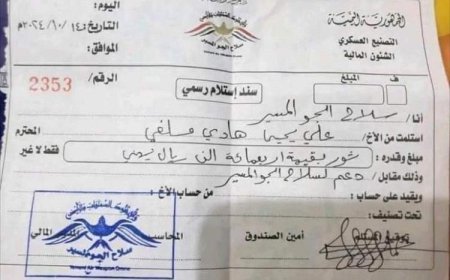 الجمهورية اليمنية
التصنيع العسكري
الشئون المالية
اليوم:
التاريخ: ١٤/١٠/٢٠٢٤م
الموافق:
سلاح الجو المسير
ف المبلغ
سند إستلام رسمي
الرقم/ 2353
أنا/ سلاح الجو المسير
استلمت من الأخ/ علي يحيى هادي مسلفي المحترم
مبلغ وقدره: ثور بقيمة اربعمائة الف ريال يمني فقط لا غير
وذلك مقابل/ دعم لسلاح الجو المسير
ويقيد على حساب: من حساب/الأخ:
تحت تصنيف:
أمين الصندوق
المحاسب
المالي
سلاح الجو المسير
Yemeni Air Weapon Drone